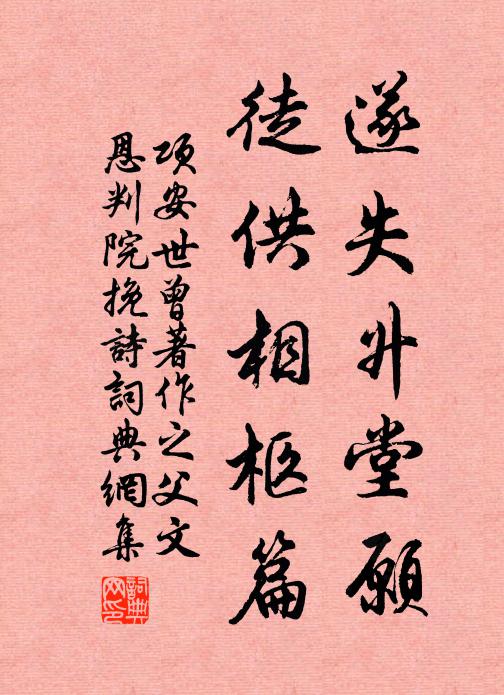 遂失升堂願
徒供相柩篇
項安世曾著作之父文
恩判院挽詩詞典網集
詞典
网包